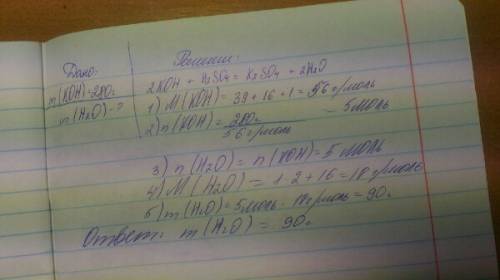 Дано:
m(KOH)=280г
m(H2O)-?
Решение:
2KOH + H2SO4 = K2SO4 + 2H2O
1) M(KOH) = 39 + 16 + 1 = 56 г/моль
2) n(KOH) = 280г / 56 г/моль = 5 моль
3) n(H2O) = n(KOH) = 5 моль
4) M(H2O) = 1·2 + 16 = 18 г/моль
5) m(H2O) = 5 моль · 18 г/моль = 90г
Ответ: m(H2O) = 90г